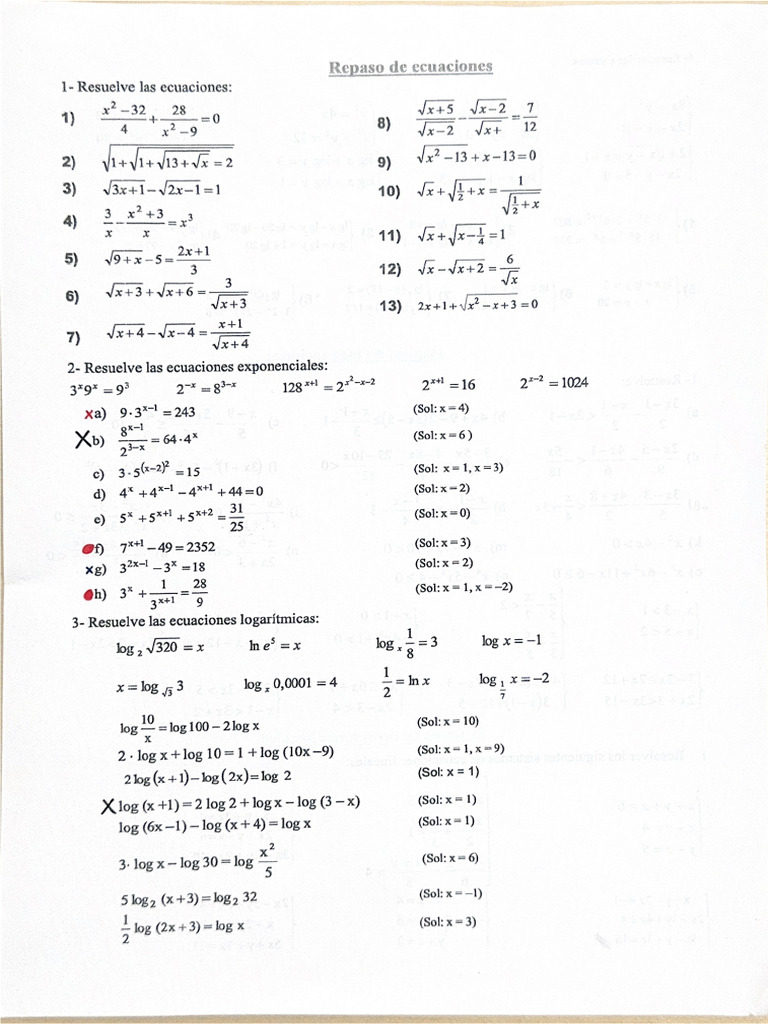 Repaso de ecuaciones
1- Resuelve las ecuaciones:
1) \frac{x^2-32}{4}+\frac{28}{x^2-9}=0
2) \sqrt{1+\sqrt{1+\sqrt{13+\sqrt{x}}}}=2
3) \sqrt{3x+1}-\sqrt{2x-1}=1
4) \frac{3}{x}-\frac{x^2+3}{x}=x^3
5) \sqrt{9+x}-5=\frac{2x+1}{3}
6) \sqrt{x+3}+\sqrt{x+6}=\frac{3}{\sqrt{x+3}}
7) \sqrt{x+4}-\sqrt{x-4}=\frac{x+1}{\sqrt{x+4}}
8) \frac{\sqrt{x+5}}{\sqrt{x-2}}-\frac{\sqrt{x-2}}{\sqrt{x+}}=\frac{7}{12}
9) \sqrt{x^2-13}+x-13=0
10) \sqrt{x}+\sqrt{\frac{1}{2}+x}=\frac{1}{\sqrt{\frac{1}{2}+x}}
11) \sqrt{x}+\sqrt{x-\frac{1}{4}}=1
12) \sqrt{x}-\sqrt{x+2}=\frac{6}{\sqrt{x}}
13) 2x+1+\sqrt{x^2-x+3}=0
2- Resuelve las ecuaciones exponenciales:
3^x9^x=9^3 2^{-x}=8^{3-x} 128^{x+1}=2^{x^2-x-2} 2^{x+1}=16 2^{x-2}=1024
xa) 9·3^{x-1}=243 (Sol: x = 4)
Xb) \frac{8^{x-1}}{2^{3-x}}=64·4^x (Sol: x = 6 )
c) 3·5^{(x-2)^2}=15 (Sol: x = 1, x = 3)
d) 4^x+4^{x-1}-4^{x+1}+44=0 (Sol: x = 2)
e) 5^x+5^{x+1}+5^{x+2}=\frac{31}{25} (Sol: x = 0)
f) 7^{x+1}-49=2352 (Sol: x = 3)
xg) 3^{2x-1}-3^x=18 (Sol: x = 2)
h) 3^x+\frac{1}{3^{x+1}}=\frac{28}{9} (Sol: x = 1, x = −2)
3- Resuelve las ecuaciones logarítmicas:
log_2 \sqrt{320}=x ln e^5=x log_x \frac{1}{8}=3 log x=-1
x=log_{\sqrt{3}} 3 log_x 0,0001=4 \frac{1}{2}=ln x log_{\frac{1}{7}} x=-2
log \frac{10}{x}=log 100-2 log x (Sol: x = 10)
2·log x+log 10=1+log (10x-9) (Sol: x = 1, x = 9)
2 log (x+1)-log (2x)=log 2 (Sol: x = 1)
X log (x+1)=2 log 2+log x-log (3-x) (Sol: x = 1)
log (6x-1)-log (x+4)=log x (Sol: x = 1)
3·log x-log 30=log \frac{x^2}{5} (Sol: x = 6)
5 log_2 (x+3)=log_2 32 (Sol: x = −1)
\frac{1}{2} log (2x+3)=log x (Sol: x = 3)